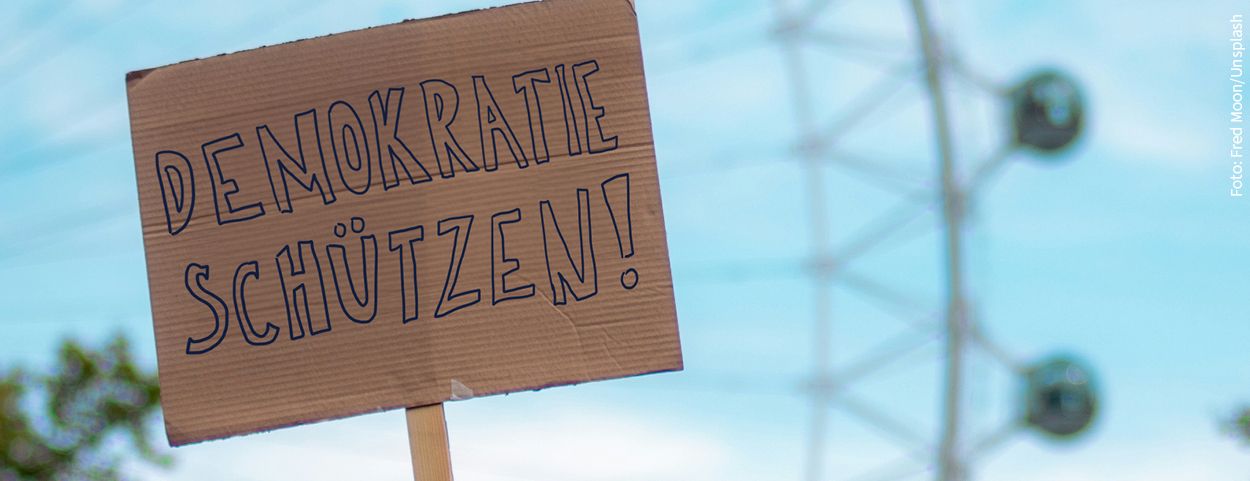 DEMOKRATIE
SCHÜTZEN!
Foto: Fred Moon/Unsplash